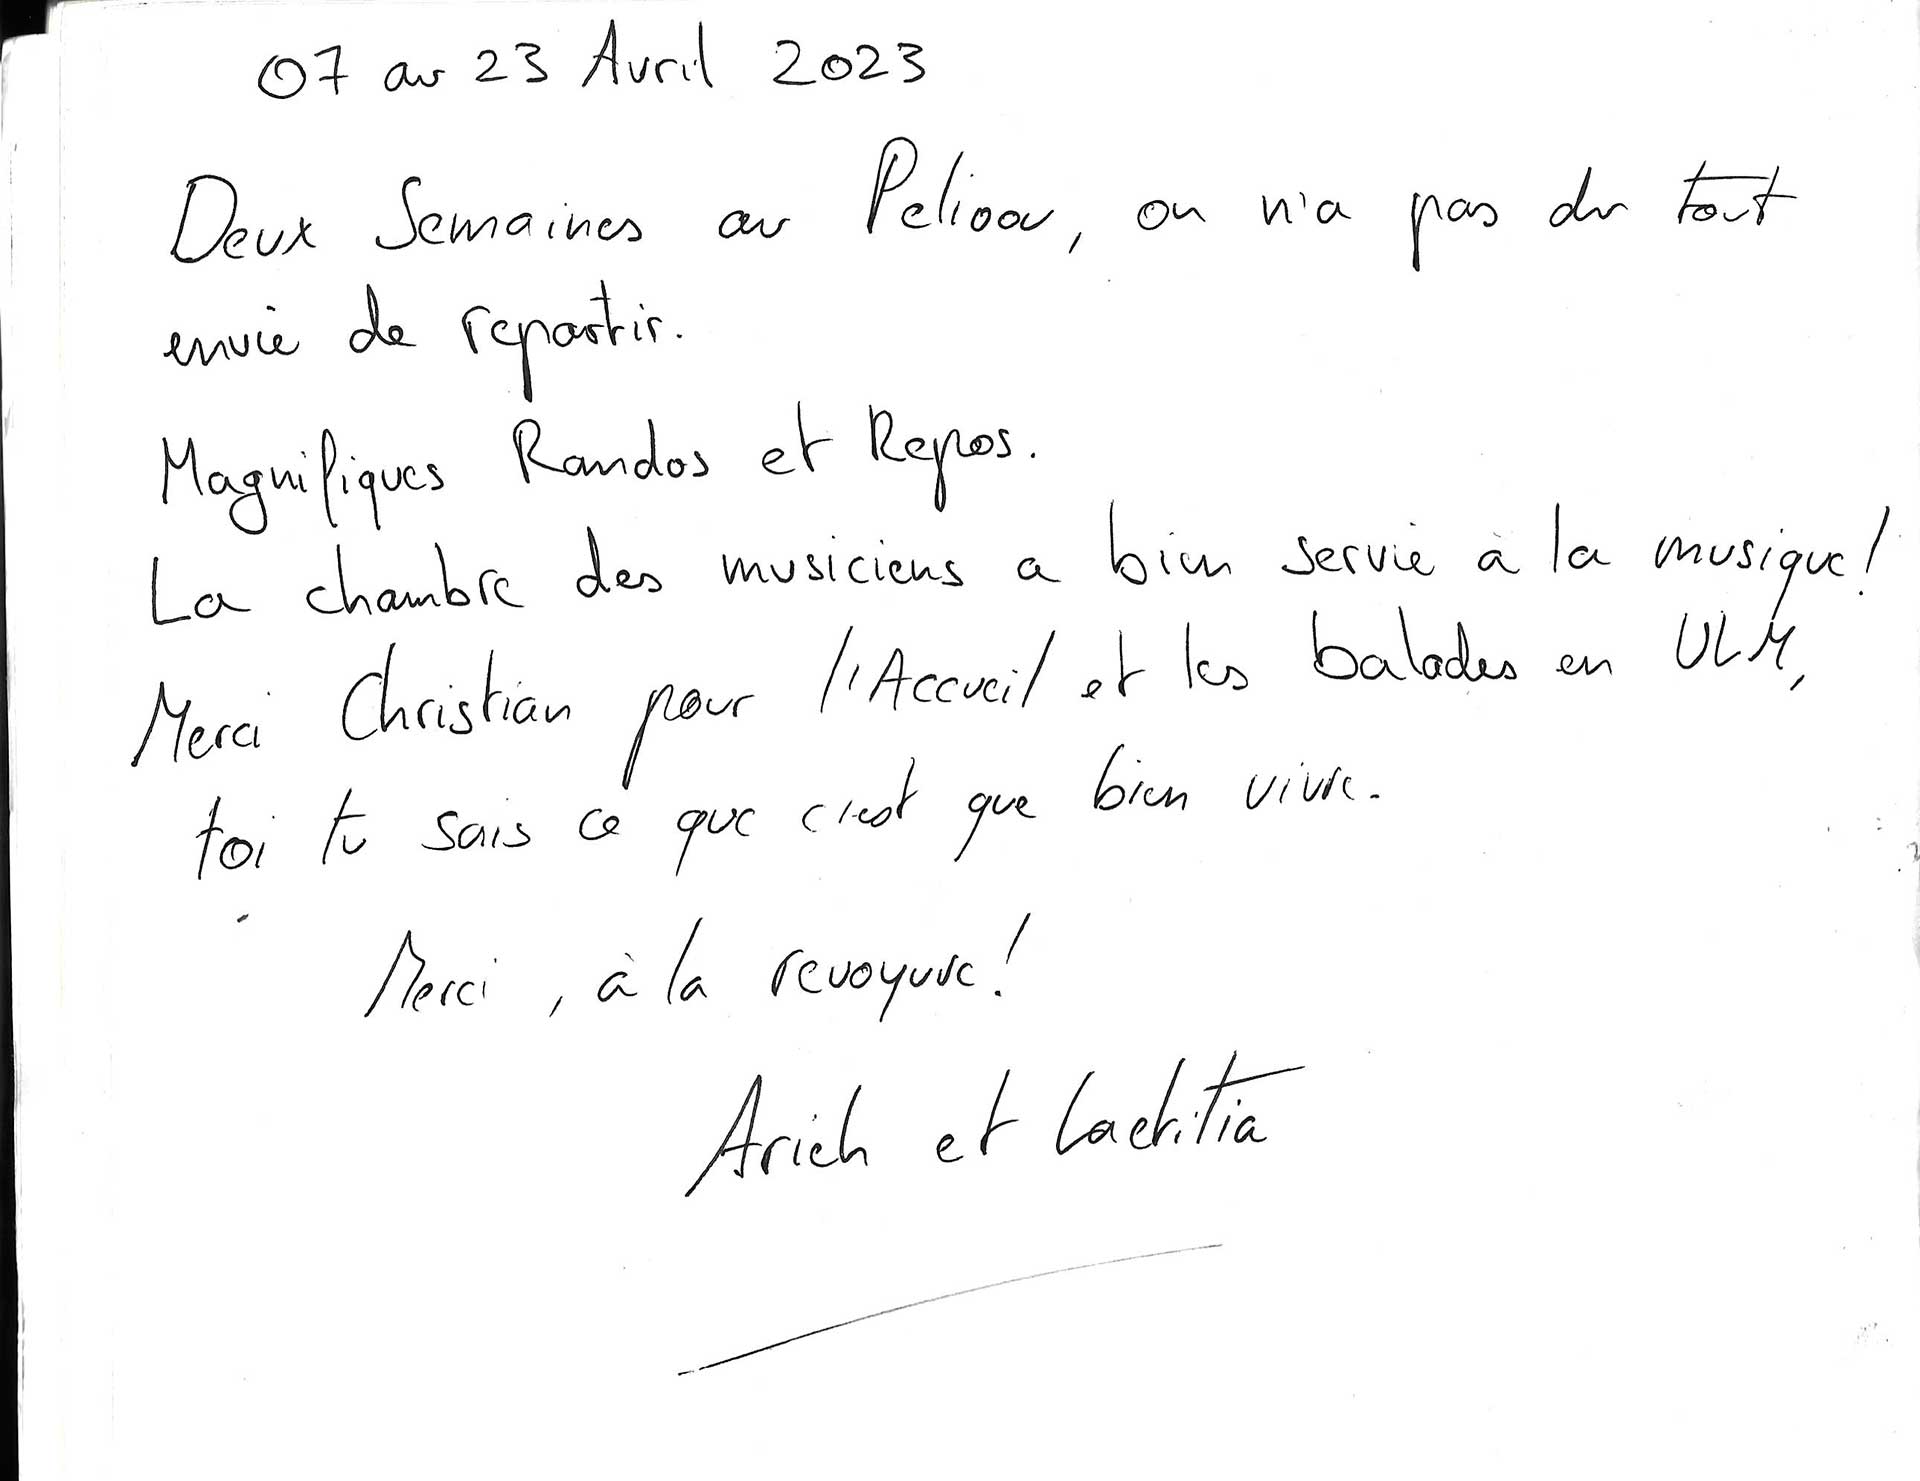 07 au 23 Avril 2023
Deux Semaines au Pelioou, on n'a pas du tout
envie de repartir.
Magnifiques Randos et Repos.
La chambre des musiciens a bien servie à la musique!
Merci Christian pour l'Accueil et les balades en ULM,
toi tu sais ce que c'est que bien vivre.
Merci, à la revoyure!
Arieh et Laetitia